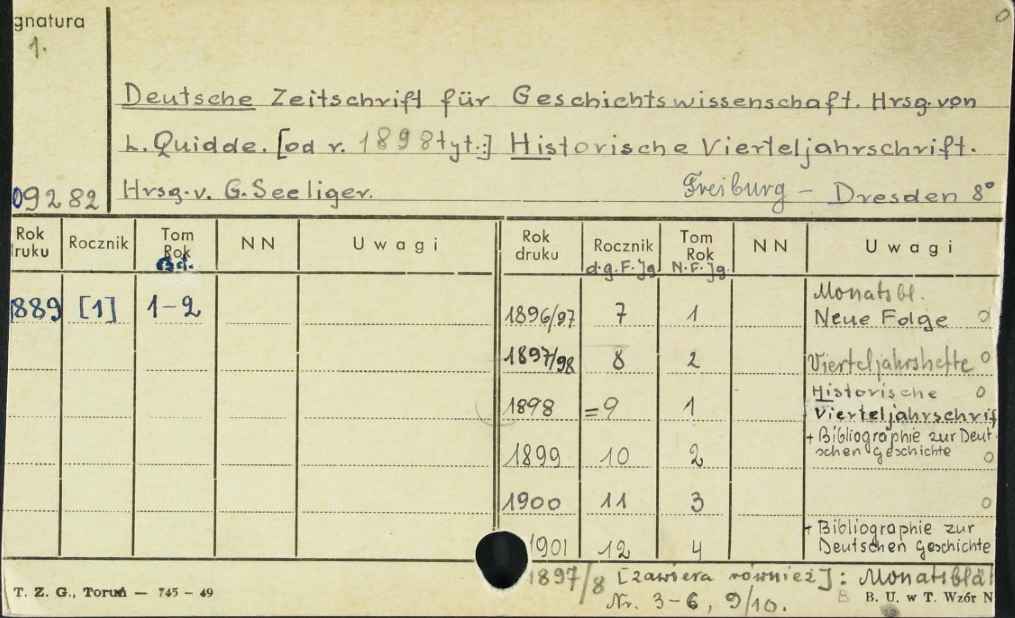 gnatura
1.
Deutsche Zeitschrift für Geschichtswissenschaft. Hrsg. von
L. Quidde. [od r. 1898 tyt.:] Historische Vierteljahrschrift.
09282 Hrsg. v. G. Seeliger. Freiburg – Dresden 8°
Rok druku Rocznik Tom Rok Bd. NN Uwagi Rok druku Rocznik d.g.F. Jg. Tom Rok N.F. Jg. NN Uwagi
889 [1] 1-2
1896/97 7 1 Monatsbl. Neue Folge 0
1897/98 8 2 Vierteljahrshefte 0
1898 =9 1 Historische 0
Vierteljahrschrif
1899 10 2 + Bibliographie zur Deut-
schen Geschichte 0
1900 11 3 0
1901 12 4 + Bibliographie zur
Deutschen Geschichte
1897/8 [zawiera również]: Monatsblä
Nr. 3-6, 9/10.
T. Z. G., Toruń — 745 – 49
B. U. w T. Wzór N